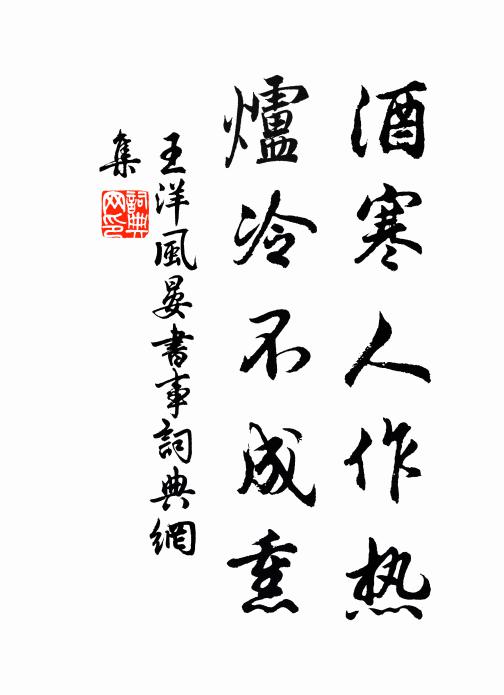 酒寒人作热
爐冷不成熏
王洋風晏書事詞典網
集
詞典
网印